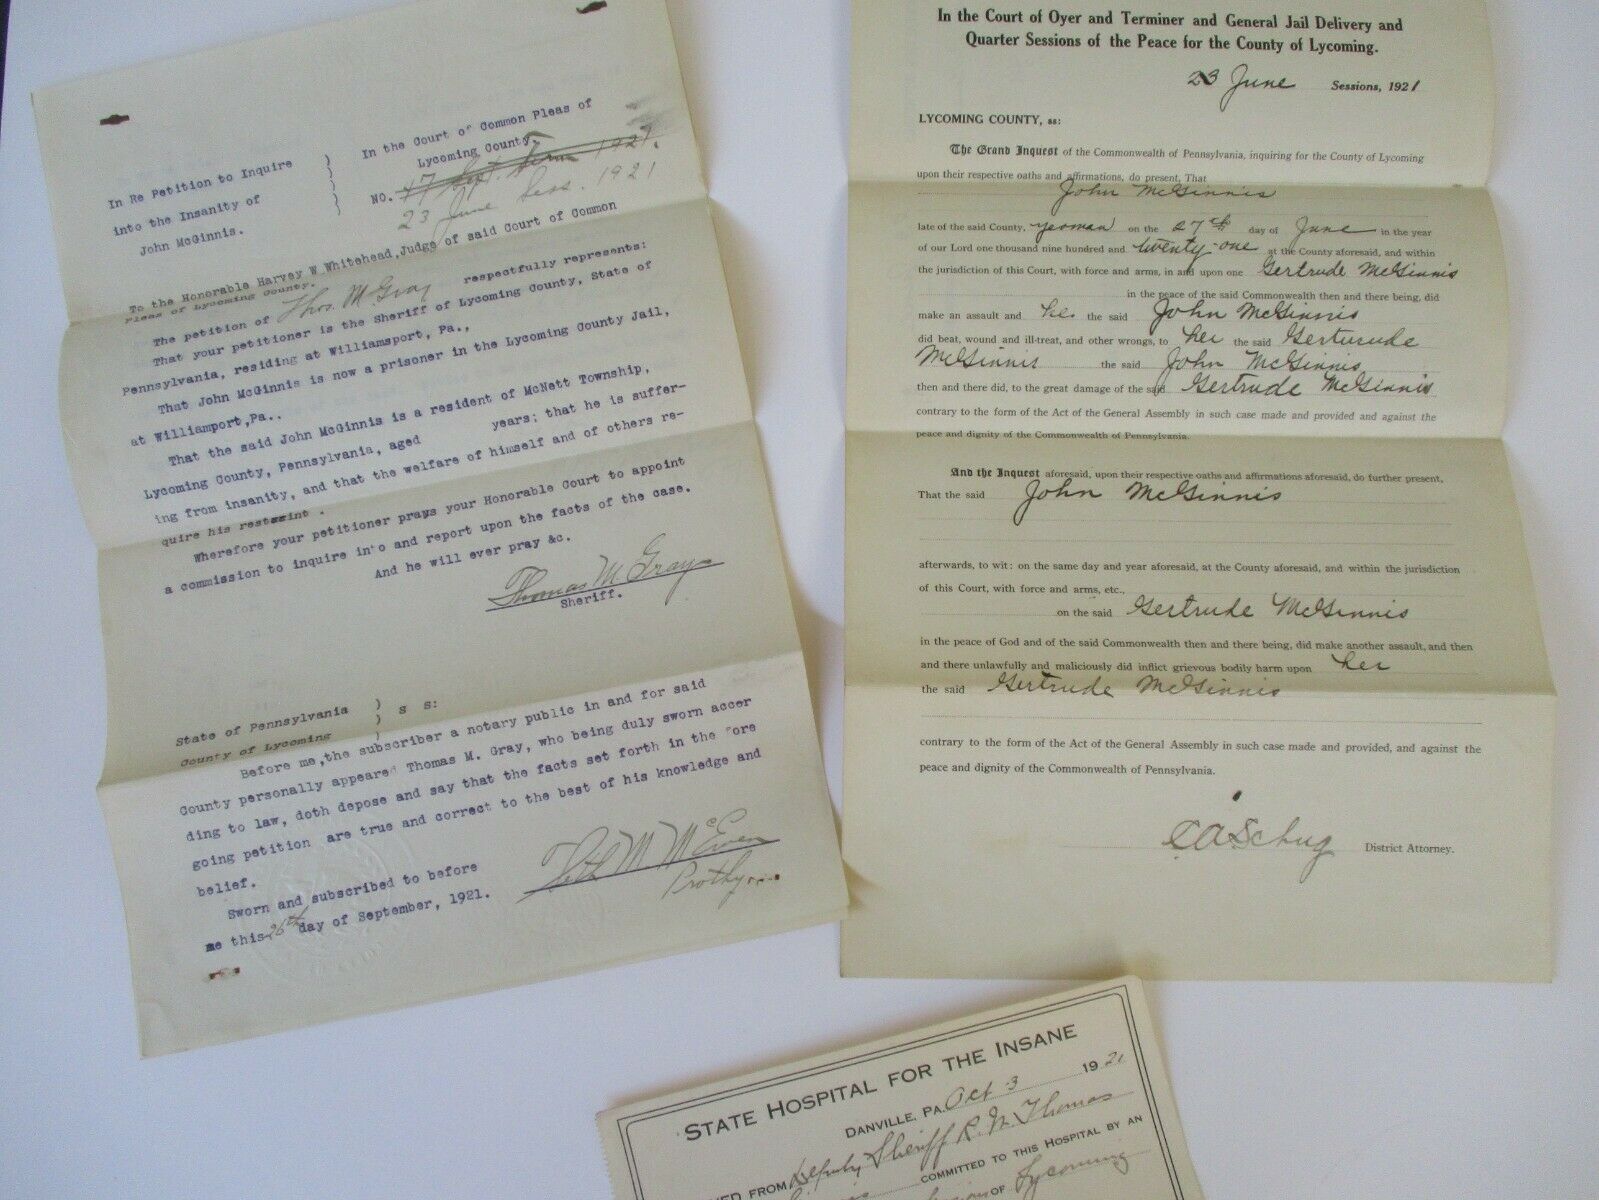 In Re Petition to Inquire
into the Insanity of
John McGinnis.
In the Court of Common Pleas of
Lycoming County.
NO. 17 Sept Term 1921.
23 June Sess. 1921
To the Honorable Harvey W Whitehead, Judge of said Court of Common
Pleas of Lycoming County.
The petition of Thos. M Gray respectfully represents:
That your petitioner is the Sheriff of Lycoming County, State of
Pennsylvania, residing at Williamsport, Pa.,
That John McGinnis is now a prisoner in the Lycoming County Jail,
at Williamport,Pa..
That the said John McGinnis is a resident of McNett Township,
Lycoming County, Pennsylvania, aged years; that he is suffer-
ing from insanity, and that the welfare of himself and of others re-
quire his restraint .
Wherefore your petitioner prays your Honorable Court to appoint
a commission to inquire into and report upon the facts of the case.
And he will ever pray &c.
Thomas M. Gray
Sheriff.
State of Pennsylvania )
) s s:
County of Lycoming )
Before me,the subscriber a notary public in and for said
County personally appeared Thomas M. Gray, who being duly sworn accor
ding to law, doth depose and say that the facts set forth in the fore
going petition are true and correct to the best of his knowledge and
belief.
Sworn and subscribed to before
me this 26th day of September, 1921.
M McEwen
Prothy
In the Court of Oyer and Terminer and General Jail Delivery and
Quarter Sessions of the Peace for the County of Lycoming.
23 June Sessions, 1921
LYCOMING COUNTY, ss:
The Grand Inquest of the Commonwealth of Pennsylvania, inquiring for the County of Lycoming
upon their respective oaths and affirmations, do present, That
John McGinnis
late of the said County, yeoman on the 27th day of June in the year
of our Lord one thousand nine hundred and twenty-one at the County aforesaid, and within
the jurisdiction of this Court, with force and arms, in and upon one Gertrude McGinnis
in the peace of the said Commonwealth then and there being, did
make an assault and he. the said John McGinnis
did beat, wound and ill-treat, and other wrongs, to her the said Gerturude
McGinnis the said John McGinnis
then and there did, to the great damage of the said Gertrude McGinnis
contrary to the form of the Act of the General Assembly in such case made and provided and against the
peace and dignity of the Commonwealth of Pennsylvania.
And the Inquest aforesaid, upon their respective oaths and affirmations aforesaid, do further present,
That the said John McGinnis
afterwards, to wit: on the same day and year aforesaid, at the County aforesaid, and within the jurisdiction
of this Court, with force and arms, etc.,
on the said Gertrude McGinnis
in the peace of God and of the said Commonwealth then and there being, did make another assault, and then
and there unlawfully and maliciously did inflict grievous bodily harm upon her
the said Gertrude McGinnis
contrary to the form of the Act of the General Assembly in such case made and provided, and against the
peace and dignity of the Commonwealth of Pennsylvania.
C A Schug District Attorney.
STATE HOSPITAL FOR THE INSANE
DANVILLE, PA. Oct 3 1921
FROM Deputy Sheriff R. N. Thomas
COMMITTED TO THIS HOSPITAL BY AN
OF Lycoming